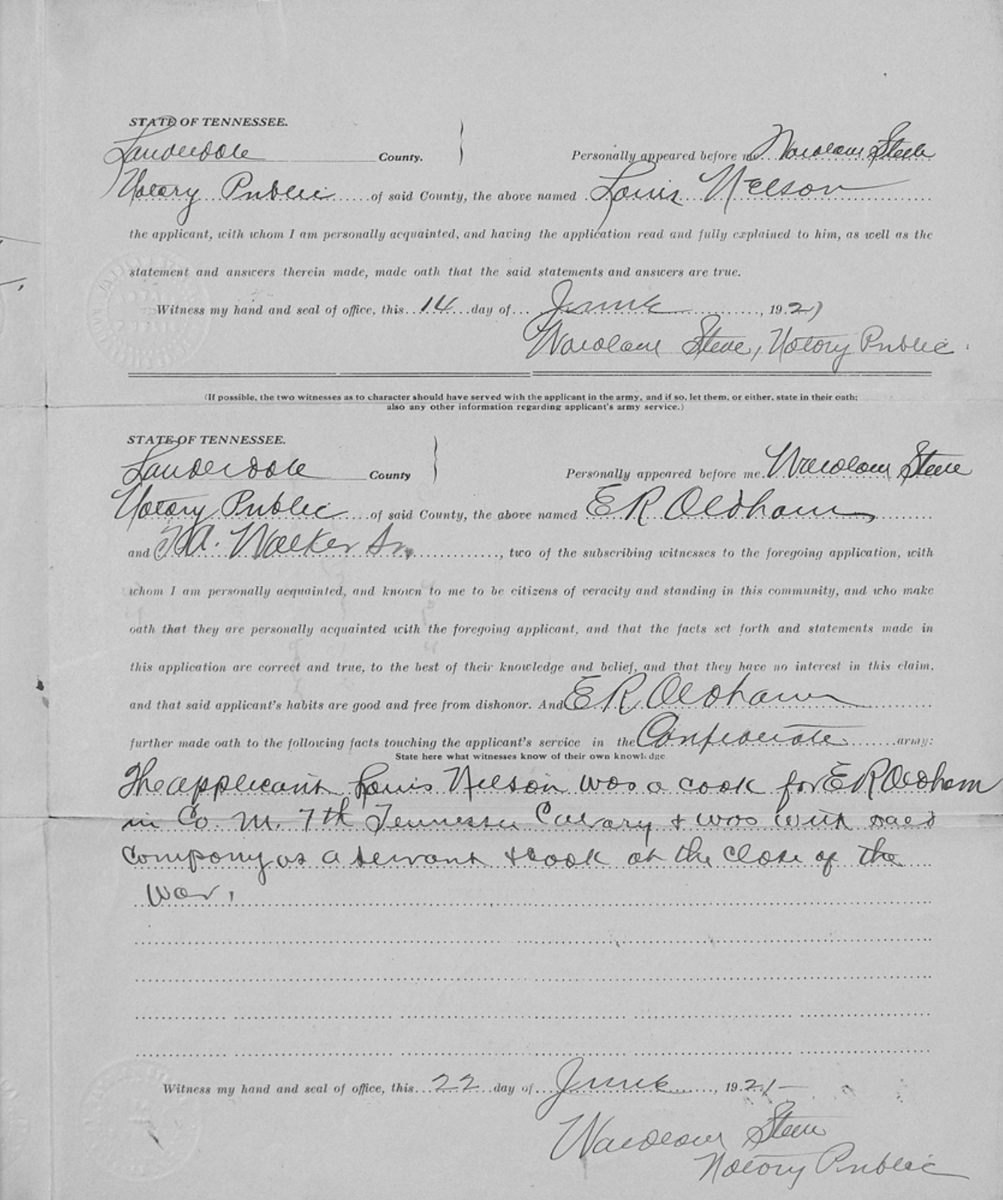 STATE OF TENNESSEE.
Lauderdale County. Personally appeared before me Wardlaw Steele
Notary Public of said County, the above named Louis Nelson
the applicant, with whom I am personally acquainted, and having the application read and fully explained to him, as well as the
statement and answers therein made, made oath that the said statements and answers are true.
Witness my hand and seal of office, this 14 day of June, 1921
Wardlaw Steele, Notary Public.
(If possible, the two witnesses as to character should have served with the applicant in the army, and if so, let them, or either, state in their oath;
also any other information regarding applicant's army service.)
STATE OF TENNESSEE.
Lauderdale County Personally appeared before me Wardlaw Steele
Notary Public of said County, the above named E R Oldham
and A. Walker Sr, two of the subscribing witnesses to the foregoing application, with
whom I am personally acquainted, and known to me to be citizens of veracity and standing in this community, and who make
oath that they are personally acquainted with the foregoing applicant, and that the facts set forth and statements made in
this application are correct and true, to the best of their knowledge and belief, and that they have no interest in this claim,
and that said applicant's habits are good and free from dishonor. And E R Oldham
further made oath to the following facts touching the applicant's service in the Confederate army:
State here what witnesses know of their own knowledge
The applicant Louis Nelson was a cook for E R Oldham
in Co M. 7th Tennessee Calvary & was with said
Company as a servant & cook at the close of the
war.
Witness my hand and seal of office, this 22 day of June, 1921
Wardlaw Steele
Notary Public